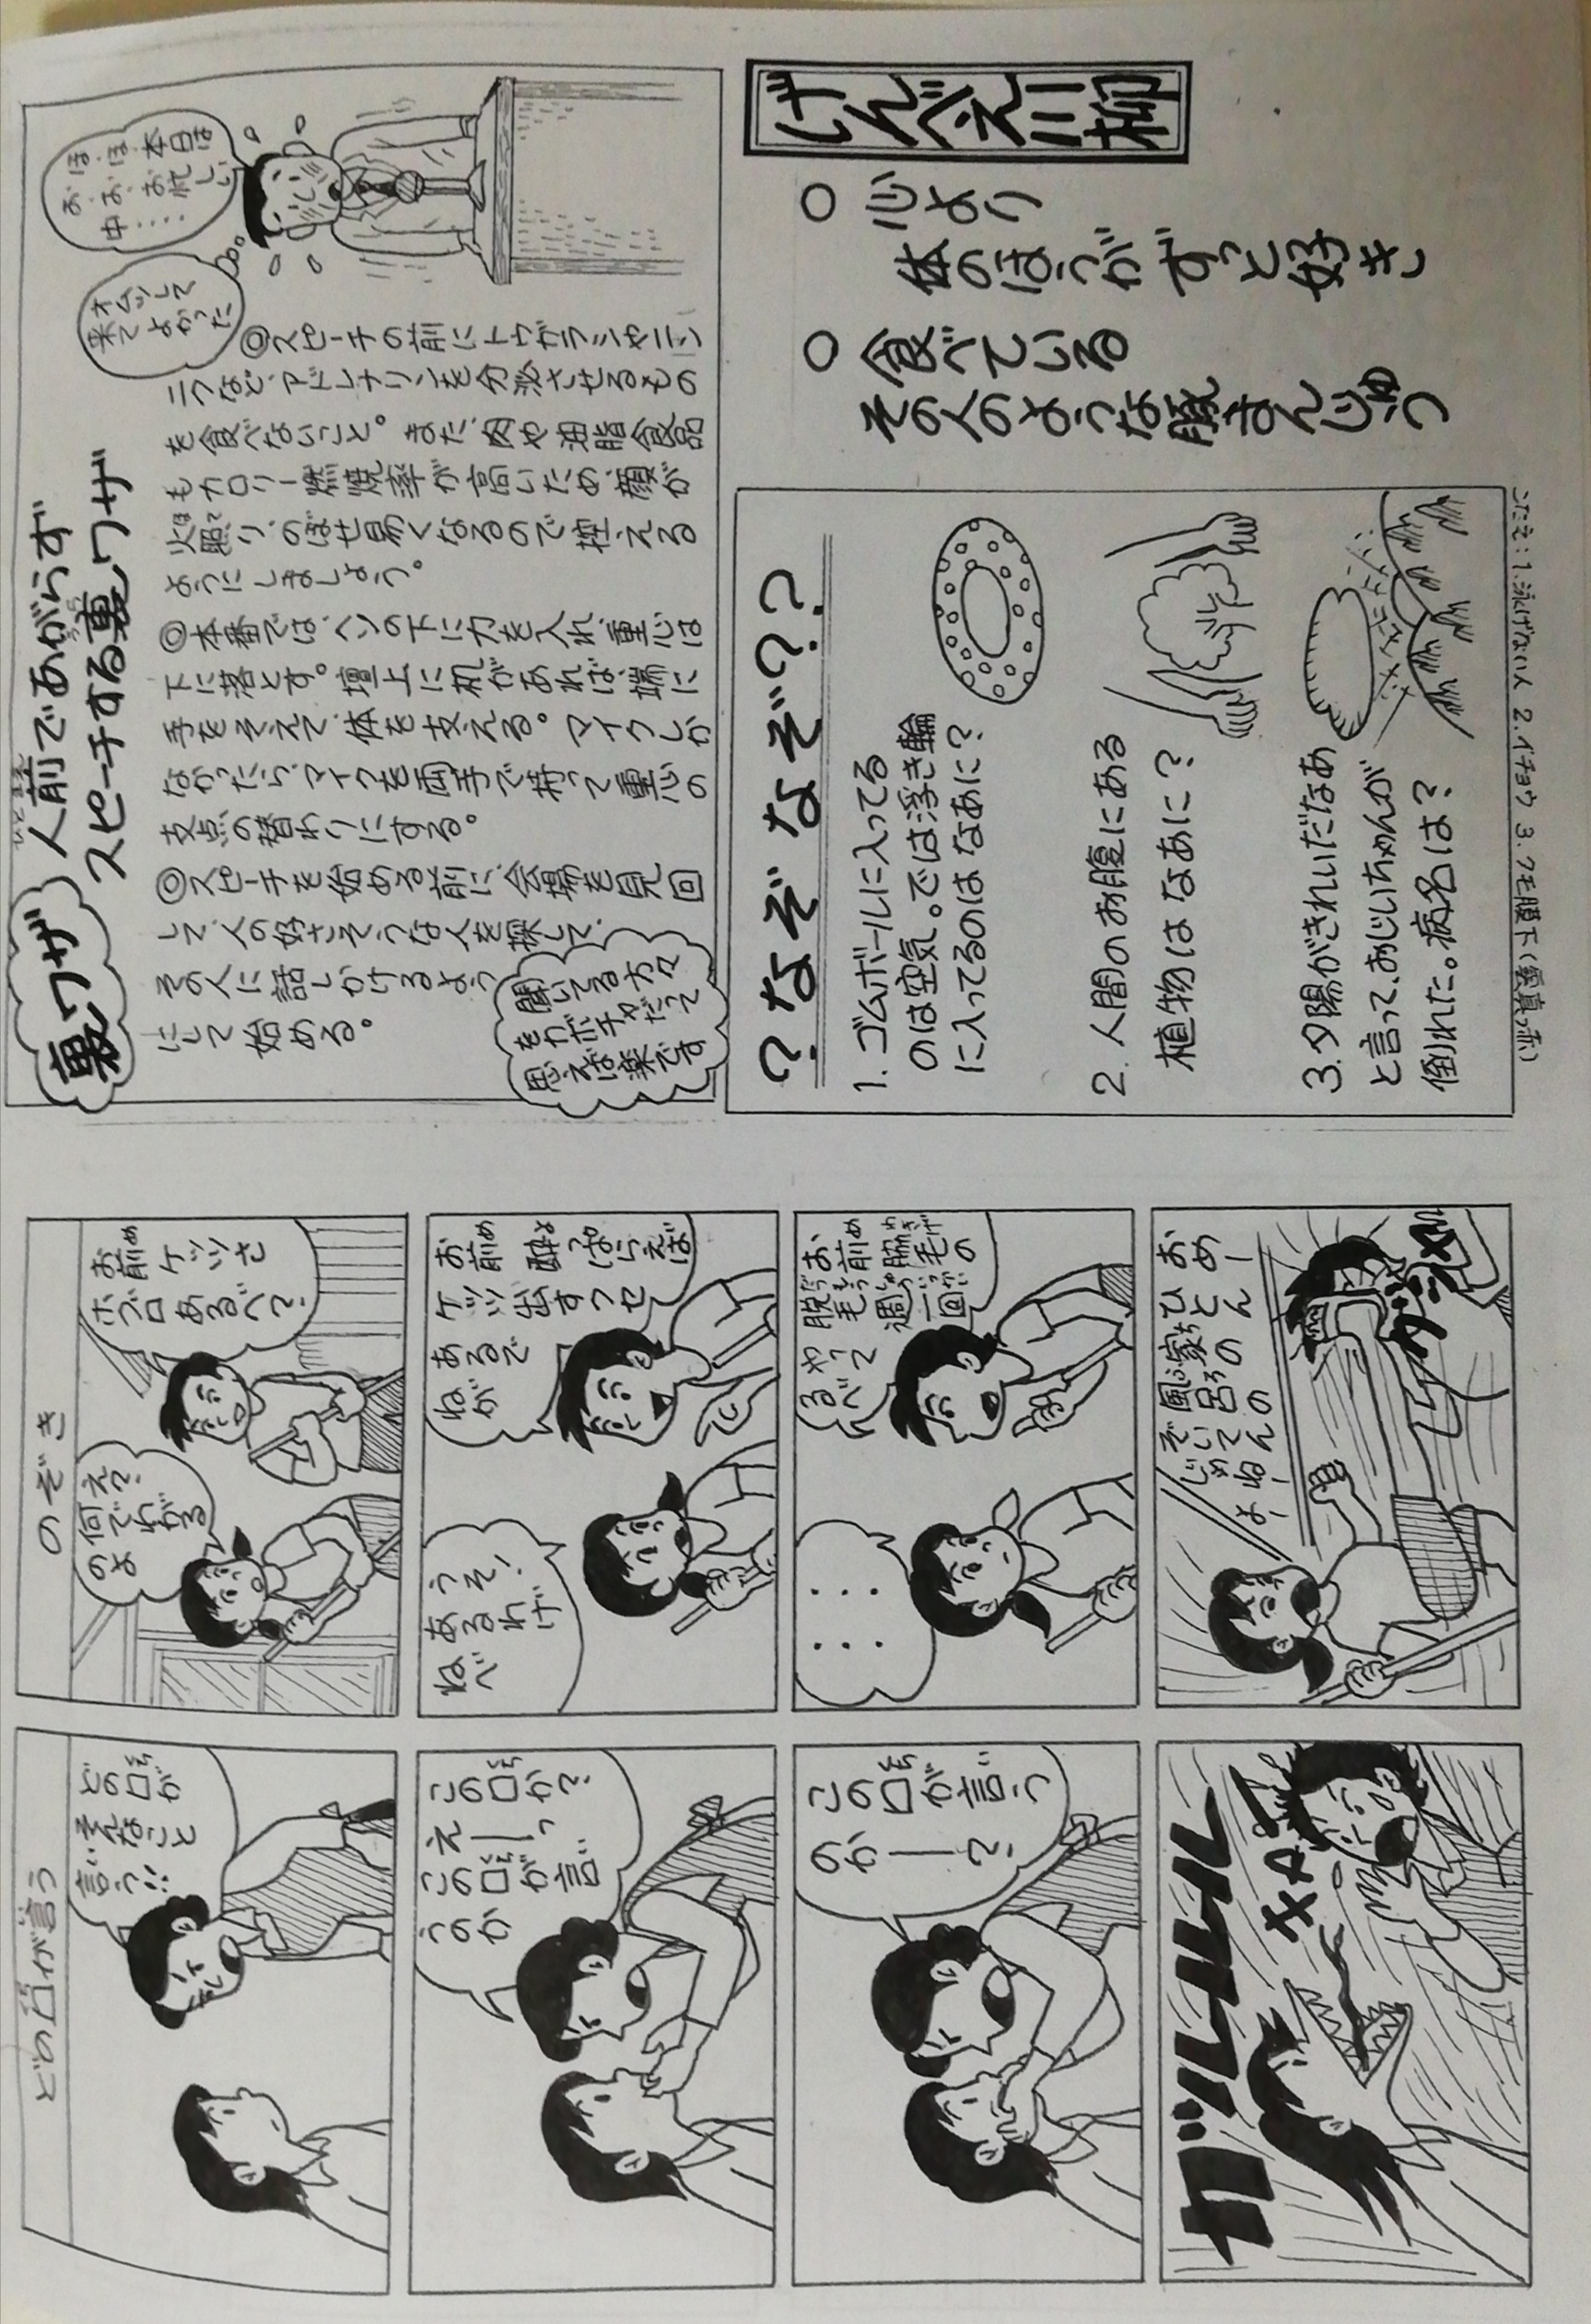 裏ワザ
人前であがらず
スピーチする裏ワザ
◎スピーチの前にトウガラシやニン
ニクなどアドレナリンを分泌させるもの
を食べないこと。また、肉や油脂食品
もカロリー燃焼率が高いため、顔が
火照り、のぼせ易くなるので控える
ようにしましょう。
◎本番では、ヘソの下に力を入れ、重心は
下に落とす。壇上に机があれば、端に
手をそえて、体を支える。マイクしか
なかったら、マイクを両手で持って重心の
支点の替わりにする。
◎スピーチを始める前に、会場を見回
して、人の好さそうな人を探して、
その人に話しかけるよう
にして始める。
聞いてる方々
をカボチャだって
思えば楽です
ほ、ほ、本日は
お、お、お忙しい
中……
オムツして
来て
よかった
けんぐゑ三句
○心より
体のほうがずっと好き
○食べている
そのくのような豚まん心中
?なぞなぞ??
1.ゴムボールに入ってる
のは空気。では浮き輪
に入ってるのはなあに?
2.人間のお腹にある
植物はなあに?
3.夕陽がきれいだなあ
と言って、おじいちゃんが
倒れた。病名は?
こたえ:1.泳げない人 2.イチョウ 3.クモ膜下(雲真っ赤)
のぞき
お前
ケツさ
ホグロあるべ?
えっ?
何でわがる
のよ
お前
酔っぱらえば
ケツ出すクセ
あるで
ねが
うそ!
あるわげ
ねべ
お前、脇毛の
脱毛週一回
やって
るべ
……
おめー
ひとん
家の
風呂
のぞいてん
じゃねー
よ
グシャ
どの口が言う
どの口が
そんなこと
言う!!
この口か?
えーっ
この口が言
うのか
この口が言う
のかー?
ガルルル